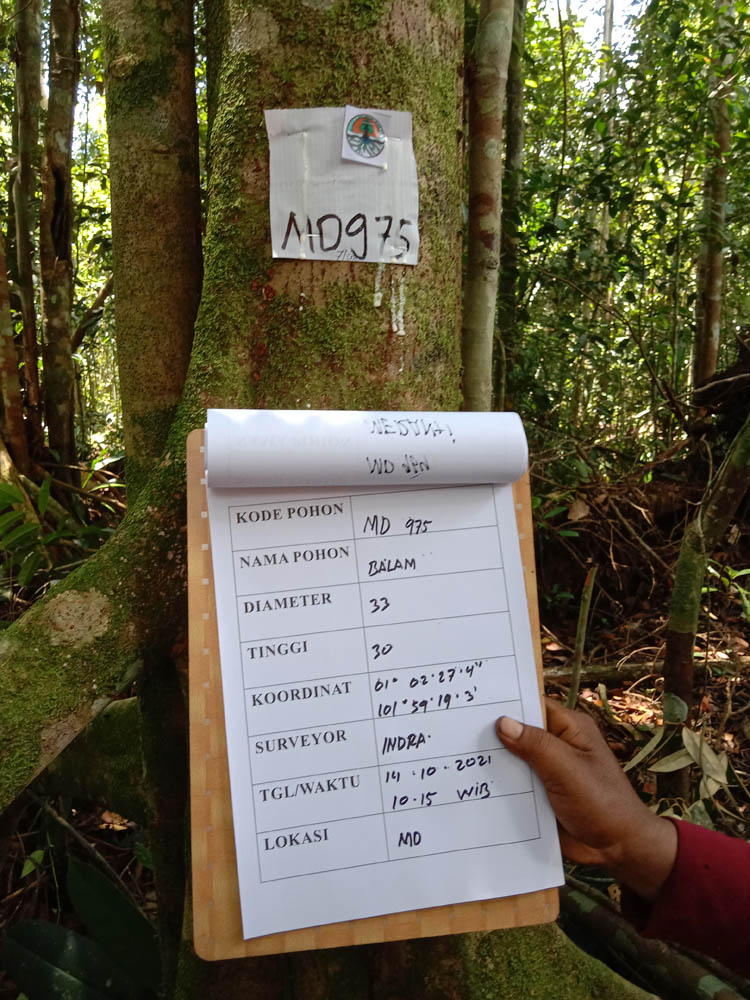 MD975
KODE POHON MD 975
NAMA POHON BALAM
DIAMETER 33
TINGGI 30
KOORDINAT 01° 02·27·4"
101° 59·19·3'
SURVEYOR INDRA·
TGL/WAKTU 14·10·2021
10·15 WIB
LOKASI MD